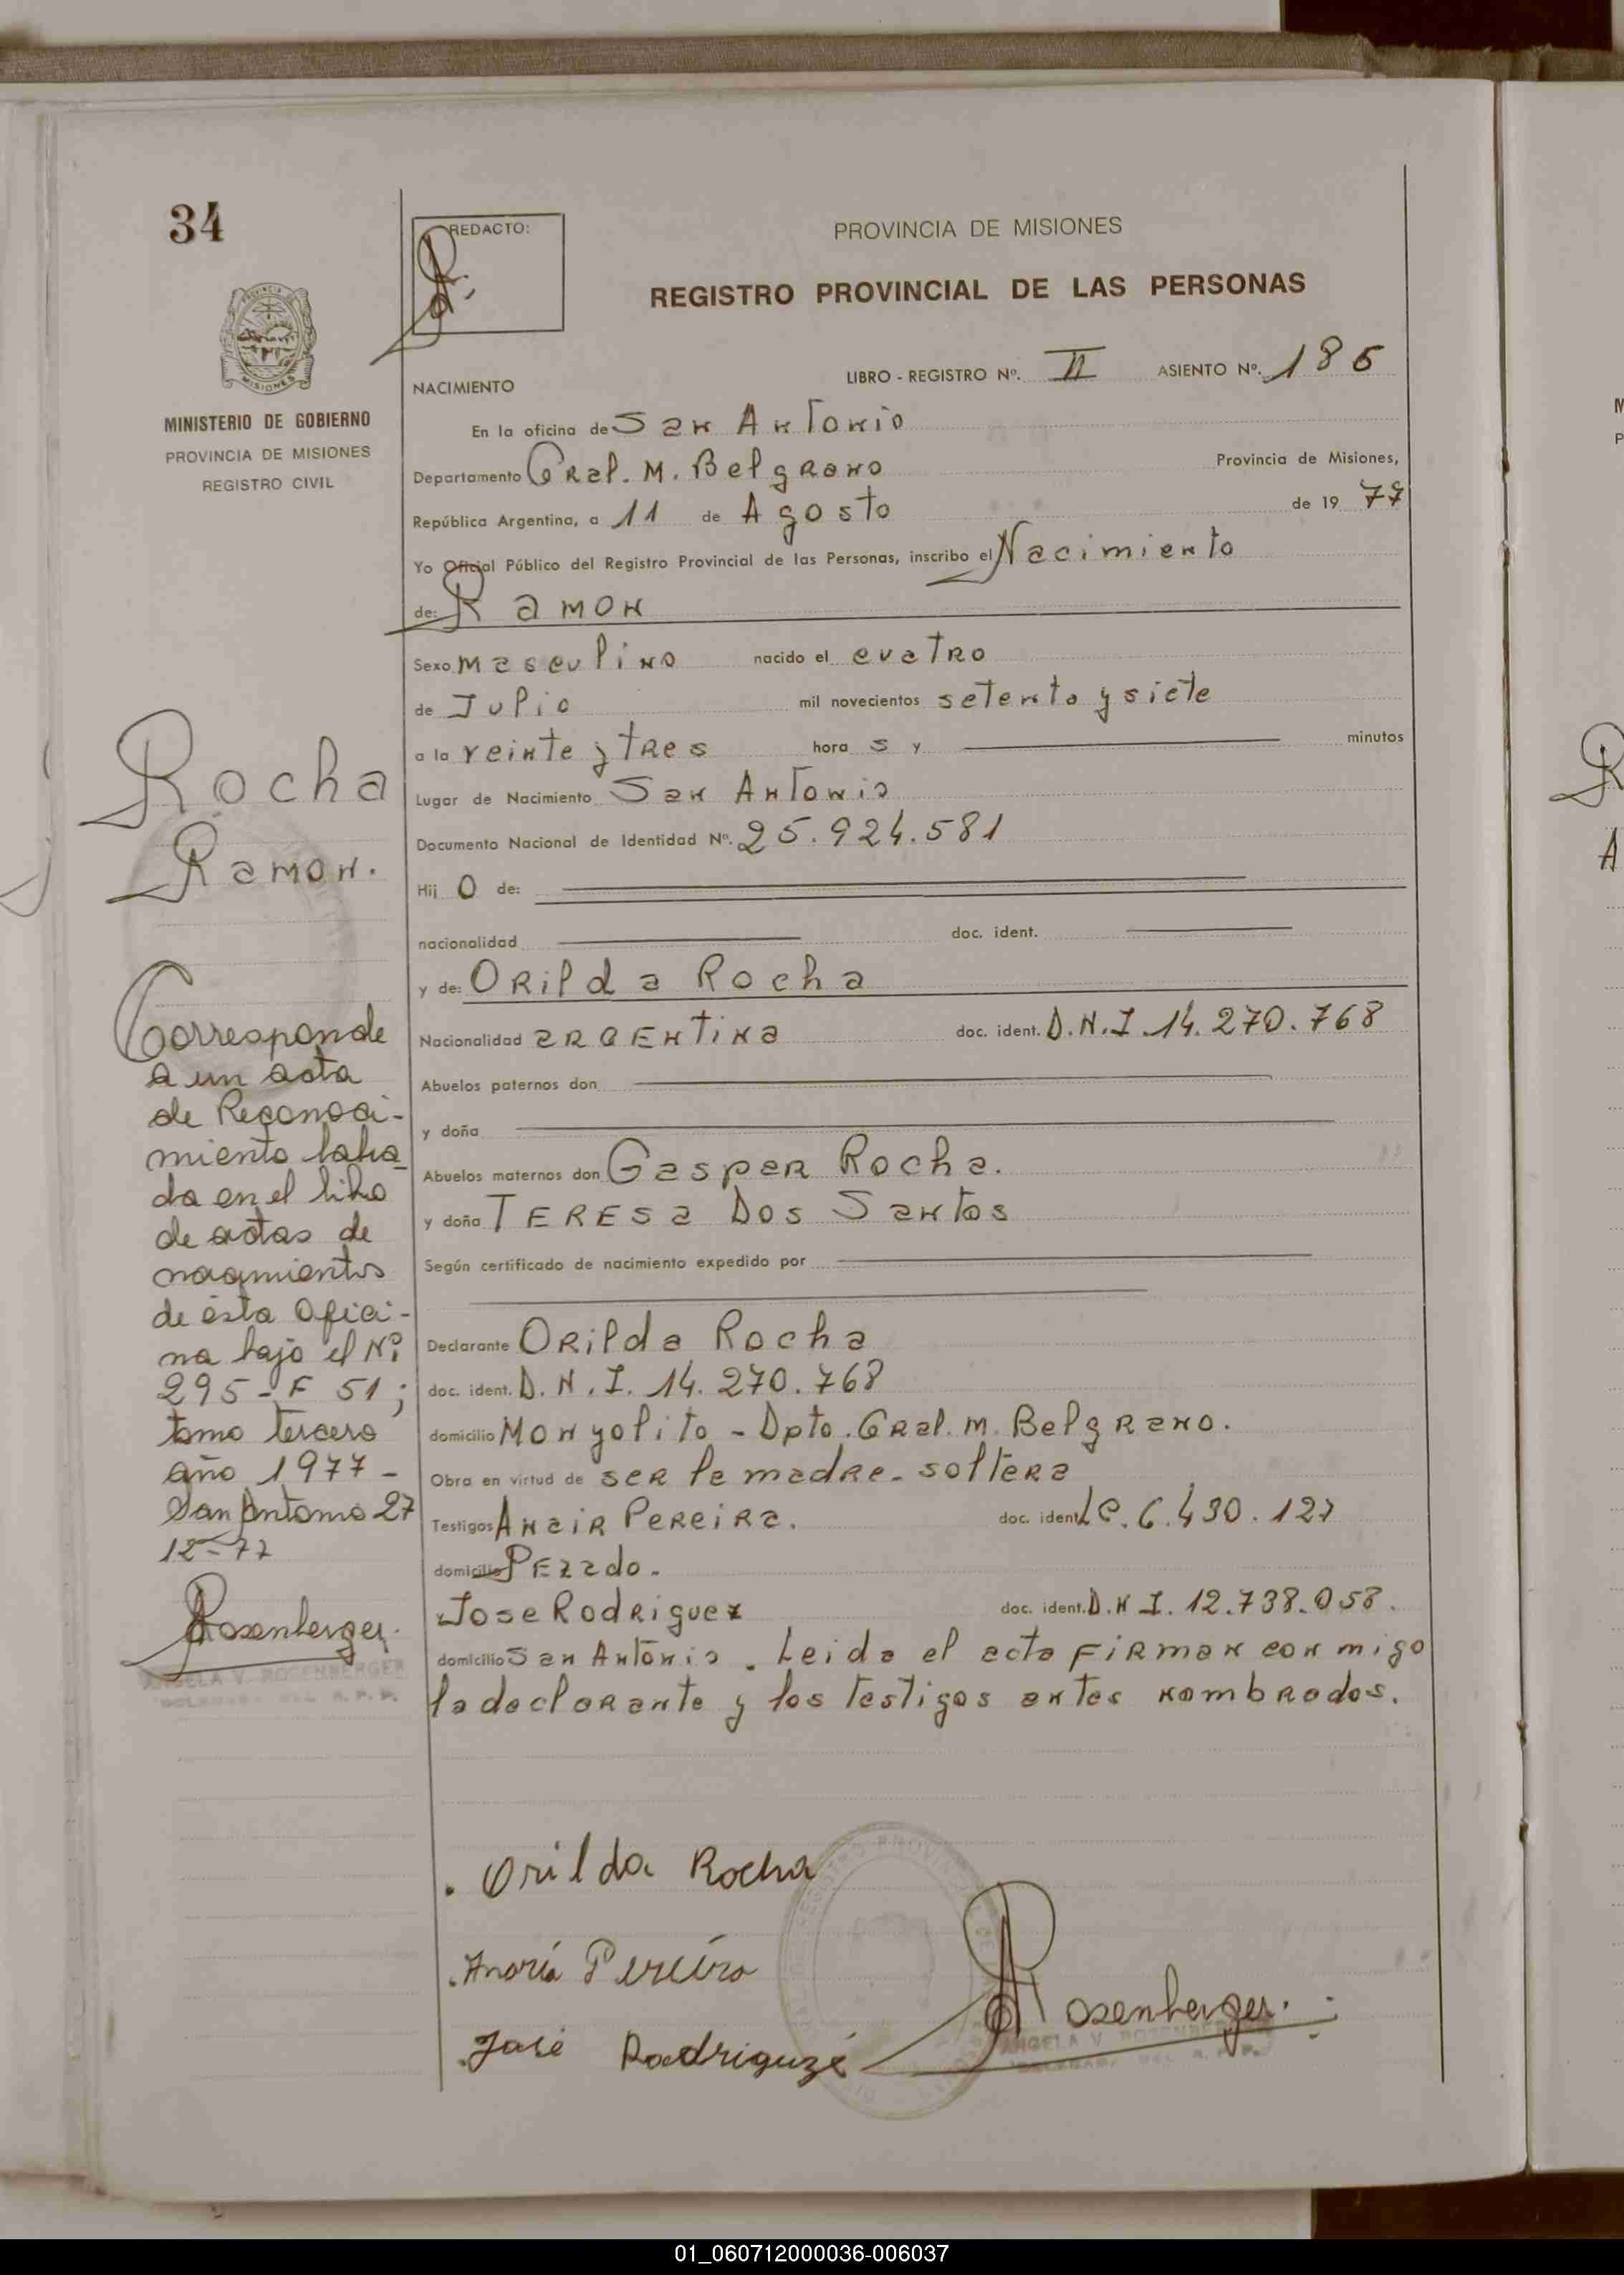 34
REDACTO:
PROVINCIA DE MISIONES
REGISTRO PROVINCIAL DE LAS PERSONAS
MINISTERIO DE GOBIERNO
PROVINCIA DE MISIONES
REGISTRO CIVIL
NACIMIENTO
LIBRO - REGISTRO Nº. II ASIENTO Nº. 186
En la oficina de San Antonio
Departamento Gral. M. Belgrano Provincia de Misiones,
República Argentina, a 11 de Agosto de 19 77
Yo Oficial Público del Registro Provincial de las Personas, inscribo el Nacimiento
de: Ramon
Sexo masculino nacido el cuatro
de Julio mil novecientos setenta y siete
a la veinte y tres hora s y minutos
Lugar de Nacimiento San Antonio
Documento Nacional de Identidad Nº. 25.924.581
Hij o de:
nacionalidad doc. ident.
y de: Orilda Rocha
Nacionalidad argentina doc. ident. D.N.I. 14.270.768
Abuelos paternos don
y doña
Abuelos maternos don Gasper Rocha.
y doña Teresa Dos Santos
Según certificado de nacimiento expedido por
Declarante Orilda Rocha
doc. ident. D.N.I. 14.270.768
domicilio Monyolito - Dpto. Gral. M. Belgrano.
Obra en virtud de ser la madre - soltera
Testigos Anair Pereira. doc. ident. LC. 6.430.127
domicilio Pezado.
Jose Rodriguez doc. ident. D.N.I. 12.738.058.
domicilio San Antonio. Leida el acta firman con migo
la declarante y los testigos antes nombrados.
Rocha
Ramon.
Corresponde
a un acta
de Reconoci-
miento labra-
da en el libro
de actas de
nacimientos
de ésta Ofici-
na bajo el Nº
295 - F 51;
tomo tercero
año 1977 -
San Antonio 27
12-77
Rosenberger.
ANGELA V. ROSENBERGER
Orilda Rocha
Pereira
José Rodriguzé
Rosenberger.
ANGELA V. ROSENBERGER
01_060712000036-006037